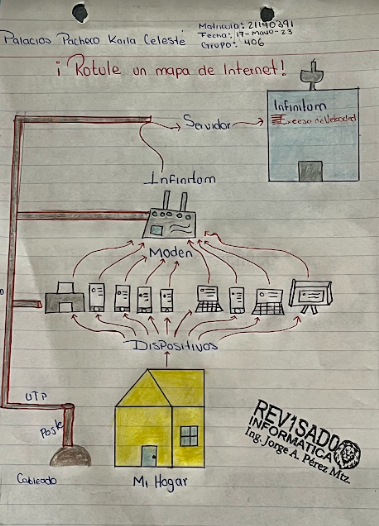 Palacios Pacheco Karla Celeste
Matricula: 21190391
Fecha: 17-Mayo-23
Grupo: 406
¡Rotule un mapa de Internet!
Infinitom
Exceso de Velocidad
Servidor
Infinitom
Moden
Dispositivos
UTP
Poste
Cableado
Mi Hogar
REVISADO
INFORMATICA
Ing. Jorge A. Pérez Mtz.